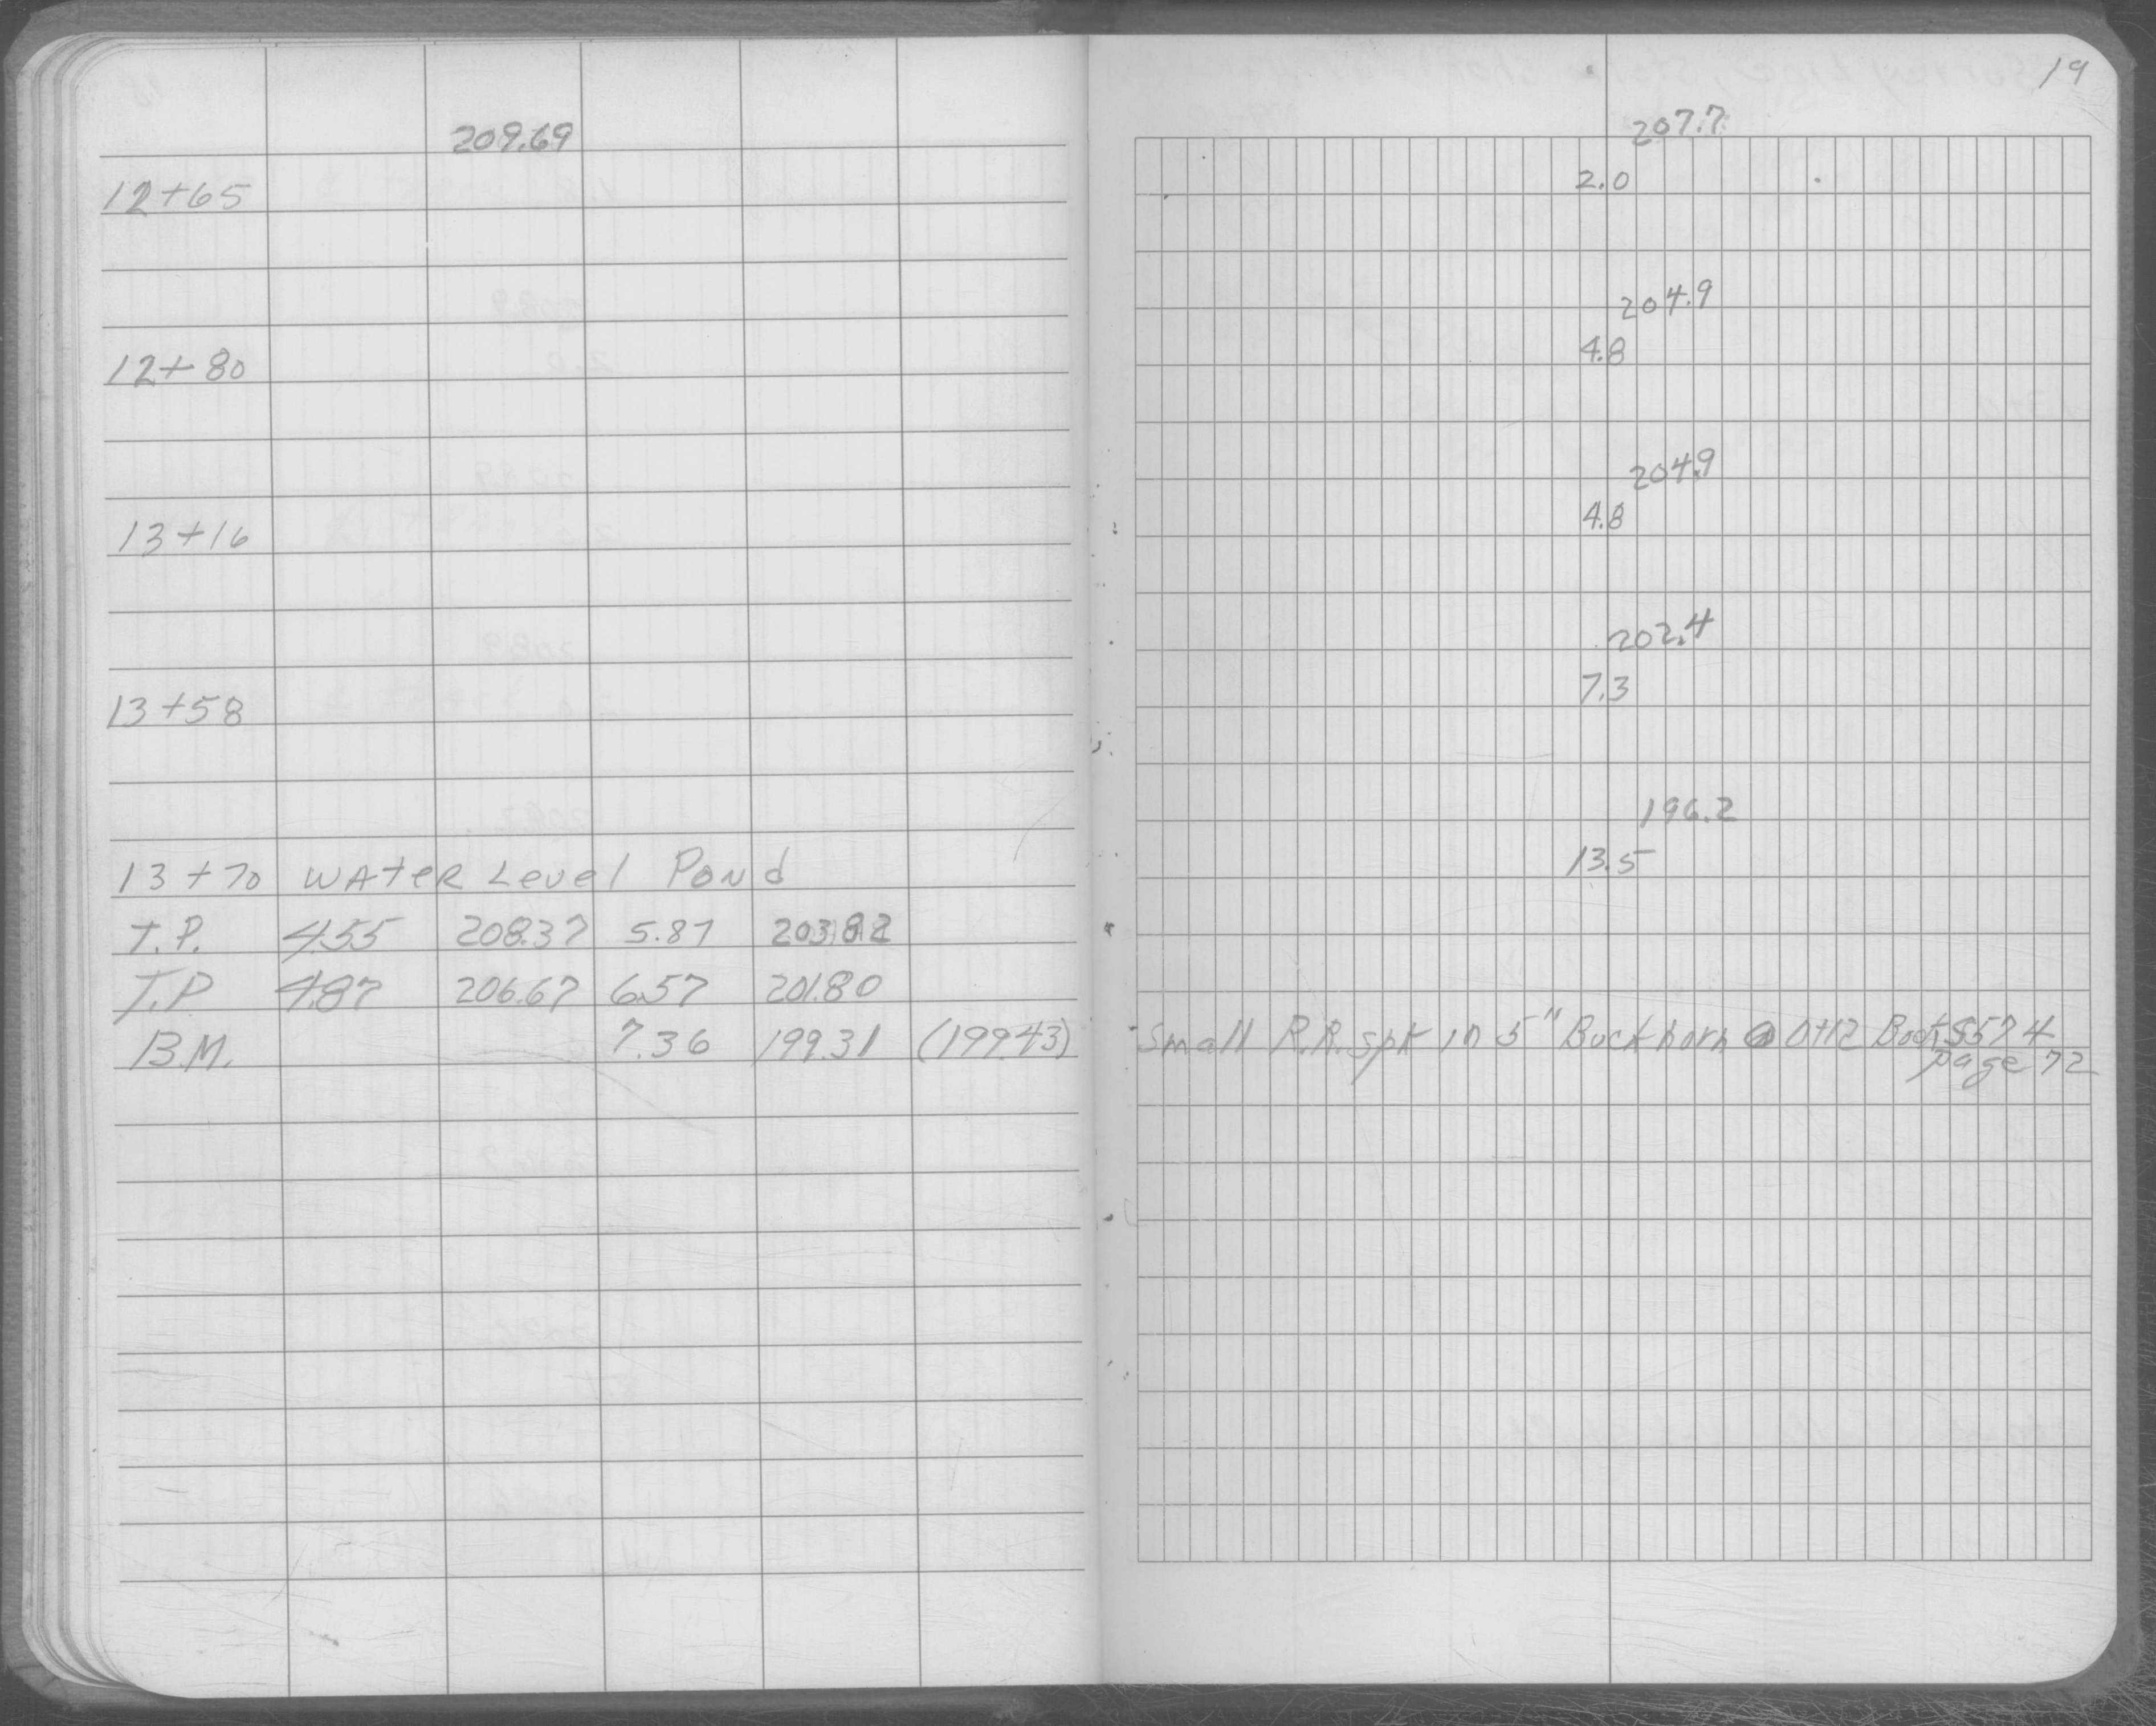 19
209.69 207.7
12+65 2.0
204.9
12+80 4.8
204.9
13+16 4.8
202.4
13+58 7.3
196.2
13+70 WATER Level Pond 13.5
T.P. 4.55 208.37 5.87 203.82
T.P 4.87 206.67 6.57 201.80
B.M. 7.36 199.31 (199.43) Small R.R. spk in 5" Buckhorn @ 0+12 Book 5574
page 72